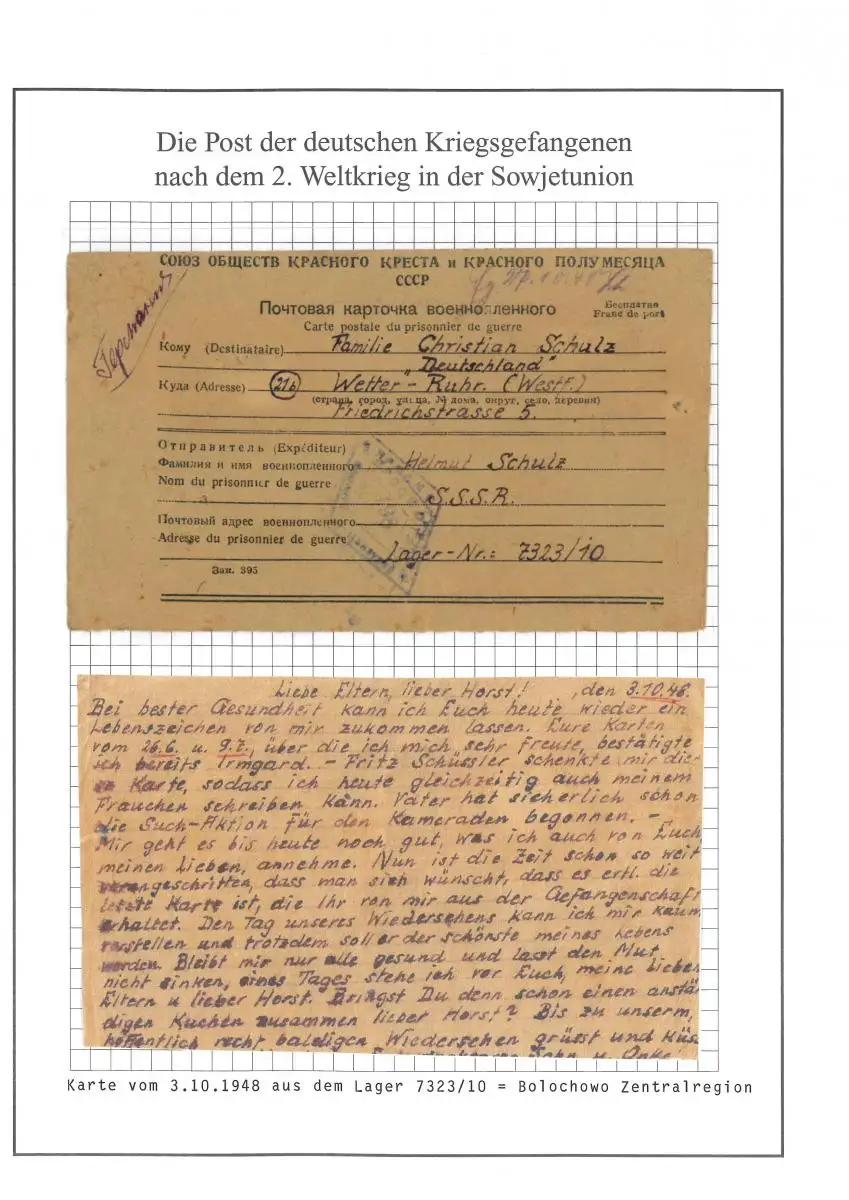 Die Post der deutschen Kriegsgefangenen
nach dem 2. Weltkrieg in der Sowjetunion
СОЮЗ ОБЩЕСТВ КРАСНОГО КРЕСТА и КРАСНОГО ПОЛУМЕСЯЦА
СССР
Почтовая карточка военнопленного
Бесплатно
Carte postale du prisonnier de guerre
Franc de port
Германия
Кому (Destinataire) Familie Christian Schulz
"Deutschland"
Куда (Adresse) 21b Wetter - Ruhr. (Westf.)
(страна, город, улица, № дома, округ, село, деревня)
Friedrichstrasse 5.
Отправитель (Expéditeur)
Фамилия и имя военнопленного Helmut Schulz
Nom du prisonnier de guerre
S.S.S.R.
Почтовый адрес военнопленного
Adresse du prisonnier de guerre Lager-Nr.: 7323/10
Зак. 395
Liebe Eltern, lieber Horst! , den 3.10.48.
Bei bester Gesundheit kann ich Euch heute wieder ein
Lebenszeichen von mir zukommen lassen. Eure Karten
vom 26.6. u. 9.7., über die ich mich sehr freute, bestätigte
ich bereits Irmgard. - Fritz Schüssler schenkte mir die
Karte, sodass ich heute gleichzeitig auch meinem
Frauchen schreiben kann. Vater hat sicherlich schon
die Such-Aktion für den Kameraden begonnen. -
Mir geht es bis heute noch gut, was ich auch von Euch,
meinen Lieben, annehme. Nun ist die Zeit schon so weit
vorangeschritten, dass man sich wünscht, dass es ertl. die
letzte Karte ist, die Ihr von mir aus der Gefangenschaft
erhaltet. Den Tag unseres Wiedersehens kann ich mir kaum
vorstellen und trotzdem soll er der schönste meines Lebens
werden. Bleibt mir nur alle gesund und lasst den Mut
nicht sinken, eines Tages stehe ich vor Euch, meine lieben
Eltern u lieber Horst. Bringst Du denn schon einen anstän
digen Kuchen zusammen lieber Horst? Bis zu unserm,
hoffentlich recht baldigen Wiedersehen grüsst und küs
Sohn u. Onke
Karte vom 3.10.1948 aus dem Lager 7323/10 = Bolochowo Zentralregion